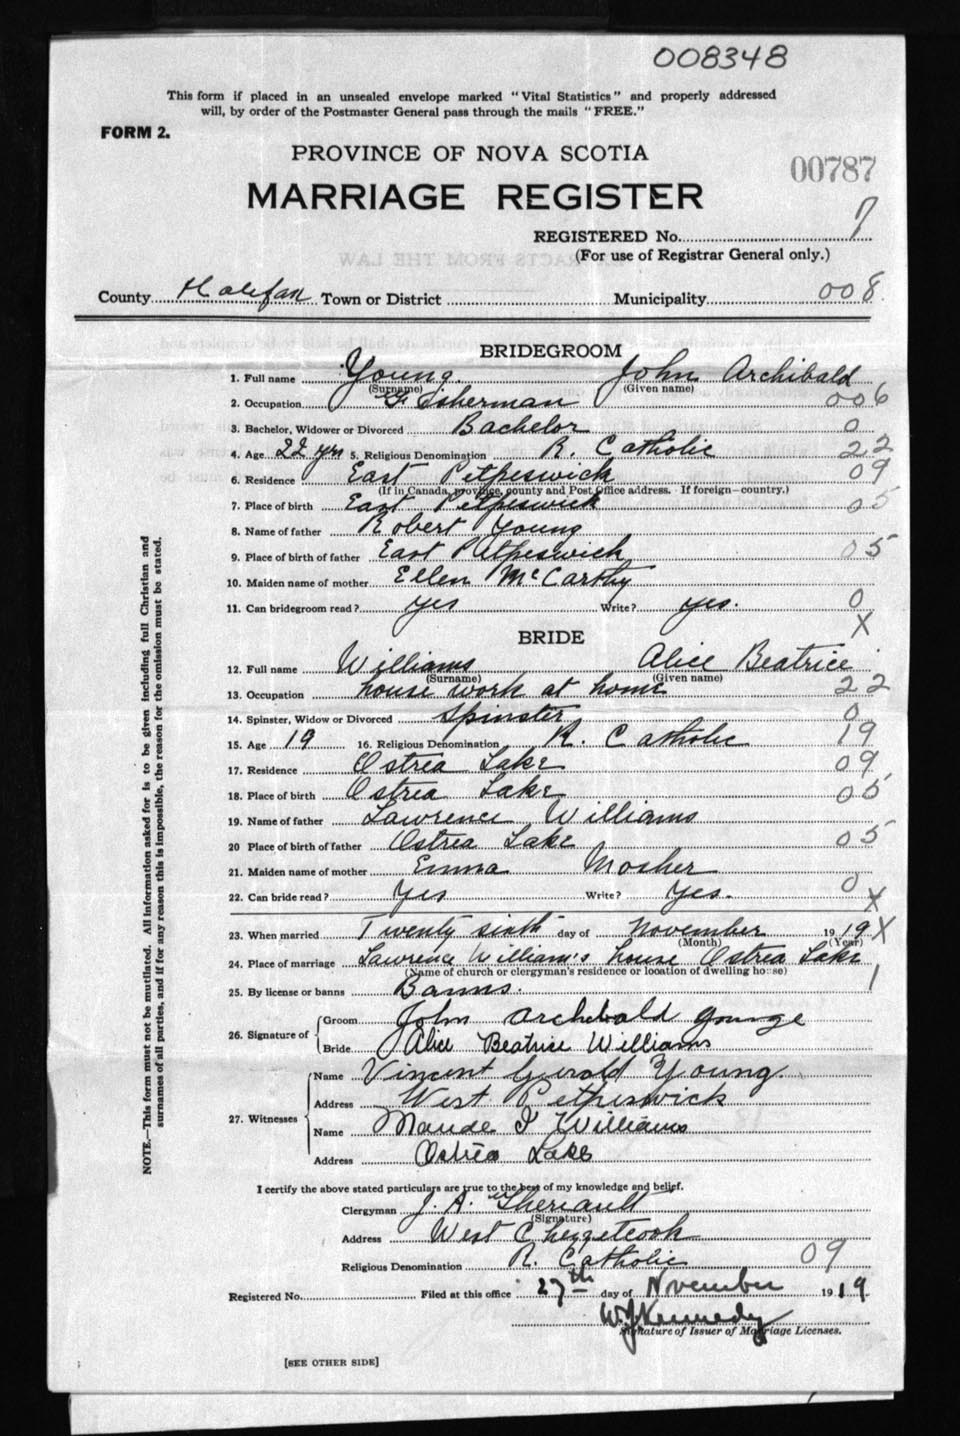 008348
This form if placed in an unsealed envelope marked "Vital Statistics" and properly addressed
will, by order of the Postmaster General pass through the mails "FREE."
FORM 2.
PROVINCE OF NOVA SCOTIA
00787
MARRIAGE REGISTER
REGISTERED No. 7
(For use of Registrar General only.)
County Halifax Town or District Municipality 008
BRIDEGROOM
1. Full name Young John Archibald
(Surname) (Given name)
2. Occupation Fisherman 006
3. Bachelor, Widower or Divorced Bachelor 0
4. Age 22 yrs 5. Religious Denomination R. Catholic 22
6. Residence East Petpeswick 09
(If in Canada, province, county and Post Office address. If foreign—country.)
7. Place of birth East Petpeswick 05
8. Name of father Robert Young
9. Place of birth of father East Petpeswick 05
10. Maiden name of mother Ellen McCarthy
11. Can bridegroom read? yes Write? yes. 0
X
BRIDE
12. Full name Williams Alice Beatrice
(Surname) (Given name)
13. Occupation house work at home 22
14. Spinster, Widow or Divorced Spinster 0
15. Age 19 16. Religious Denomination R. Catholic 19
17. Residence Ostrea Lake 09
18. Place of birth Ostrea Lake 05
19. Name of father Lawrence Williams
20 Place of birth of father Ostrea Lake 05
21. Maiden name of mother Emma Mosher
22. Can bride read? Yes Write? Yes. 0
X
23. When married Twenty sixth day of November 1919 X
(Month) (Year)
24. Place of marriage Lawrence William's house Ostrea Lake
(Name of church or clergyman's residence or location of dwelling house)
25. By license or banns Banns. 1
26. Signature of Groom John Archibald Younge
Bride Alice Beatrice Williams
27. Witnesses Name Vincent Gerald Young
Address West Petpeswick
Name Maude I Williams
Address Ostrea Lake
I certify the above stated particulars are true to the best of my knowledge and belief.
Clergyman J. A. Theriault
(Signature)
Address West Chezzetcook
Religious Denomination R. Catholic 09
Registered No. Filed at this office 27th day of November 1919
W J Kennedy
Signature of Issuer of Marriage Licenses.
[SEE OTHER SIDE]
NOTE.—This form must not be mutilated. All information asked for is to be given including full Christian and
surnames of all parties, and if for any reason this is impossible, the reason for the omission must be stated.